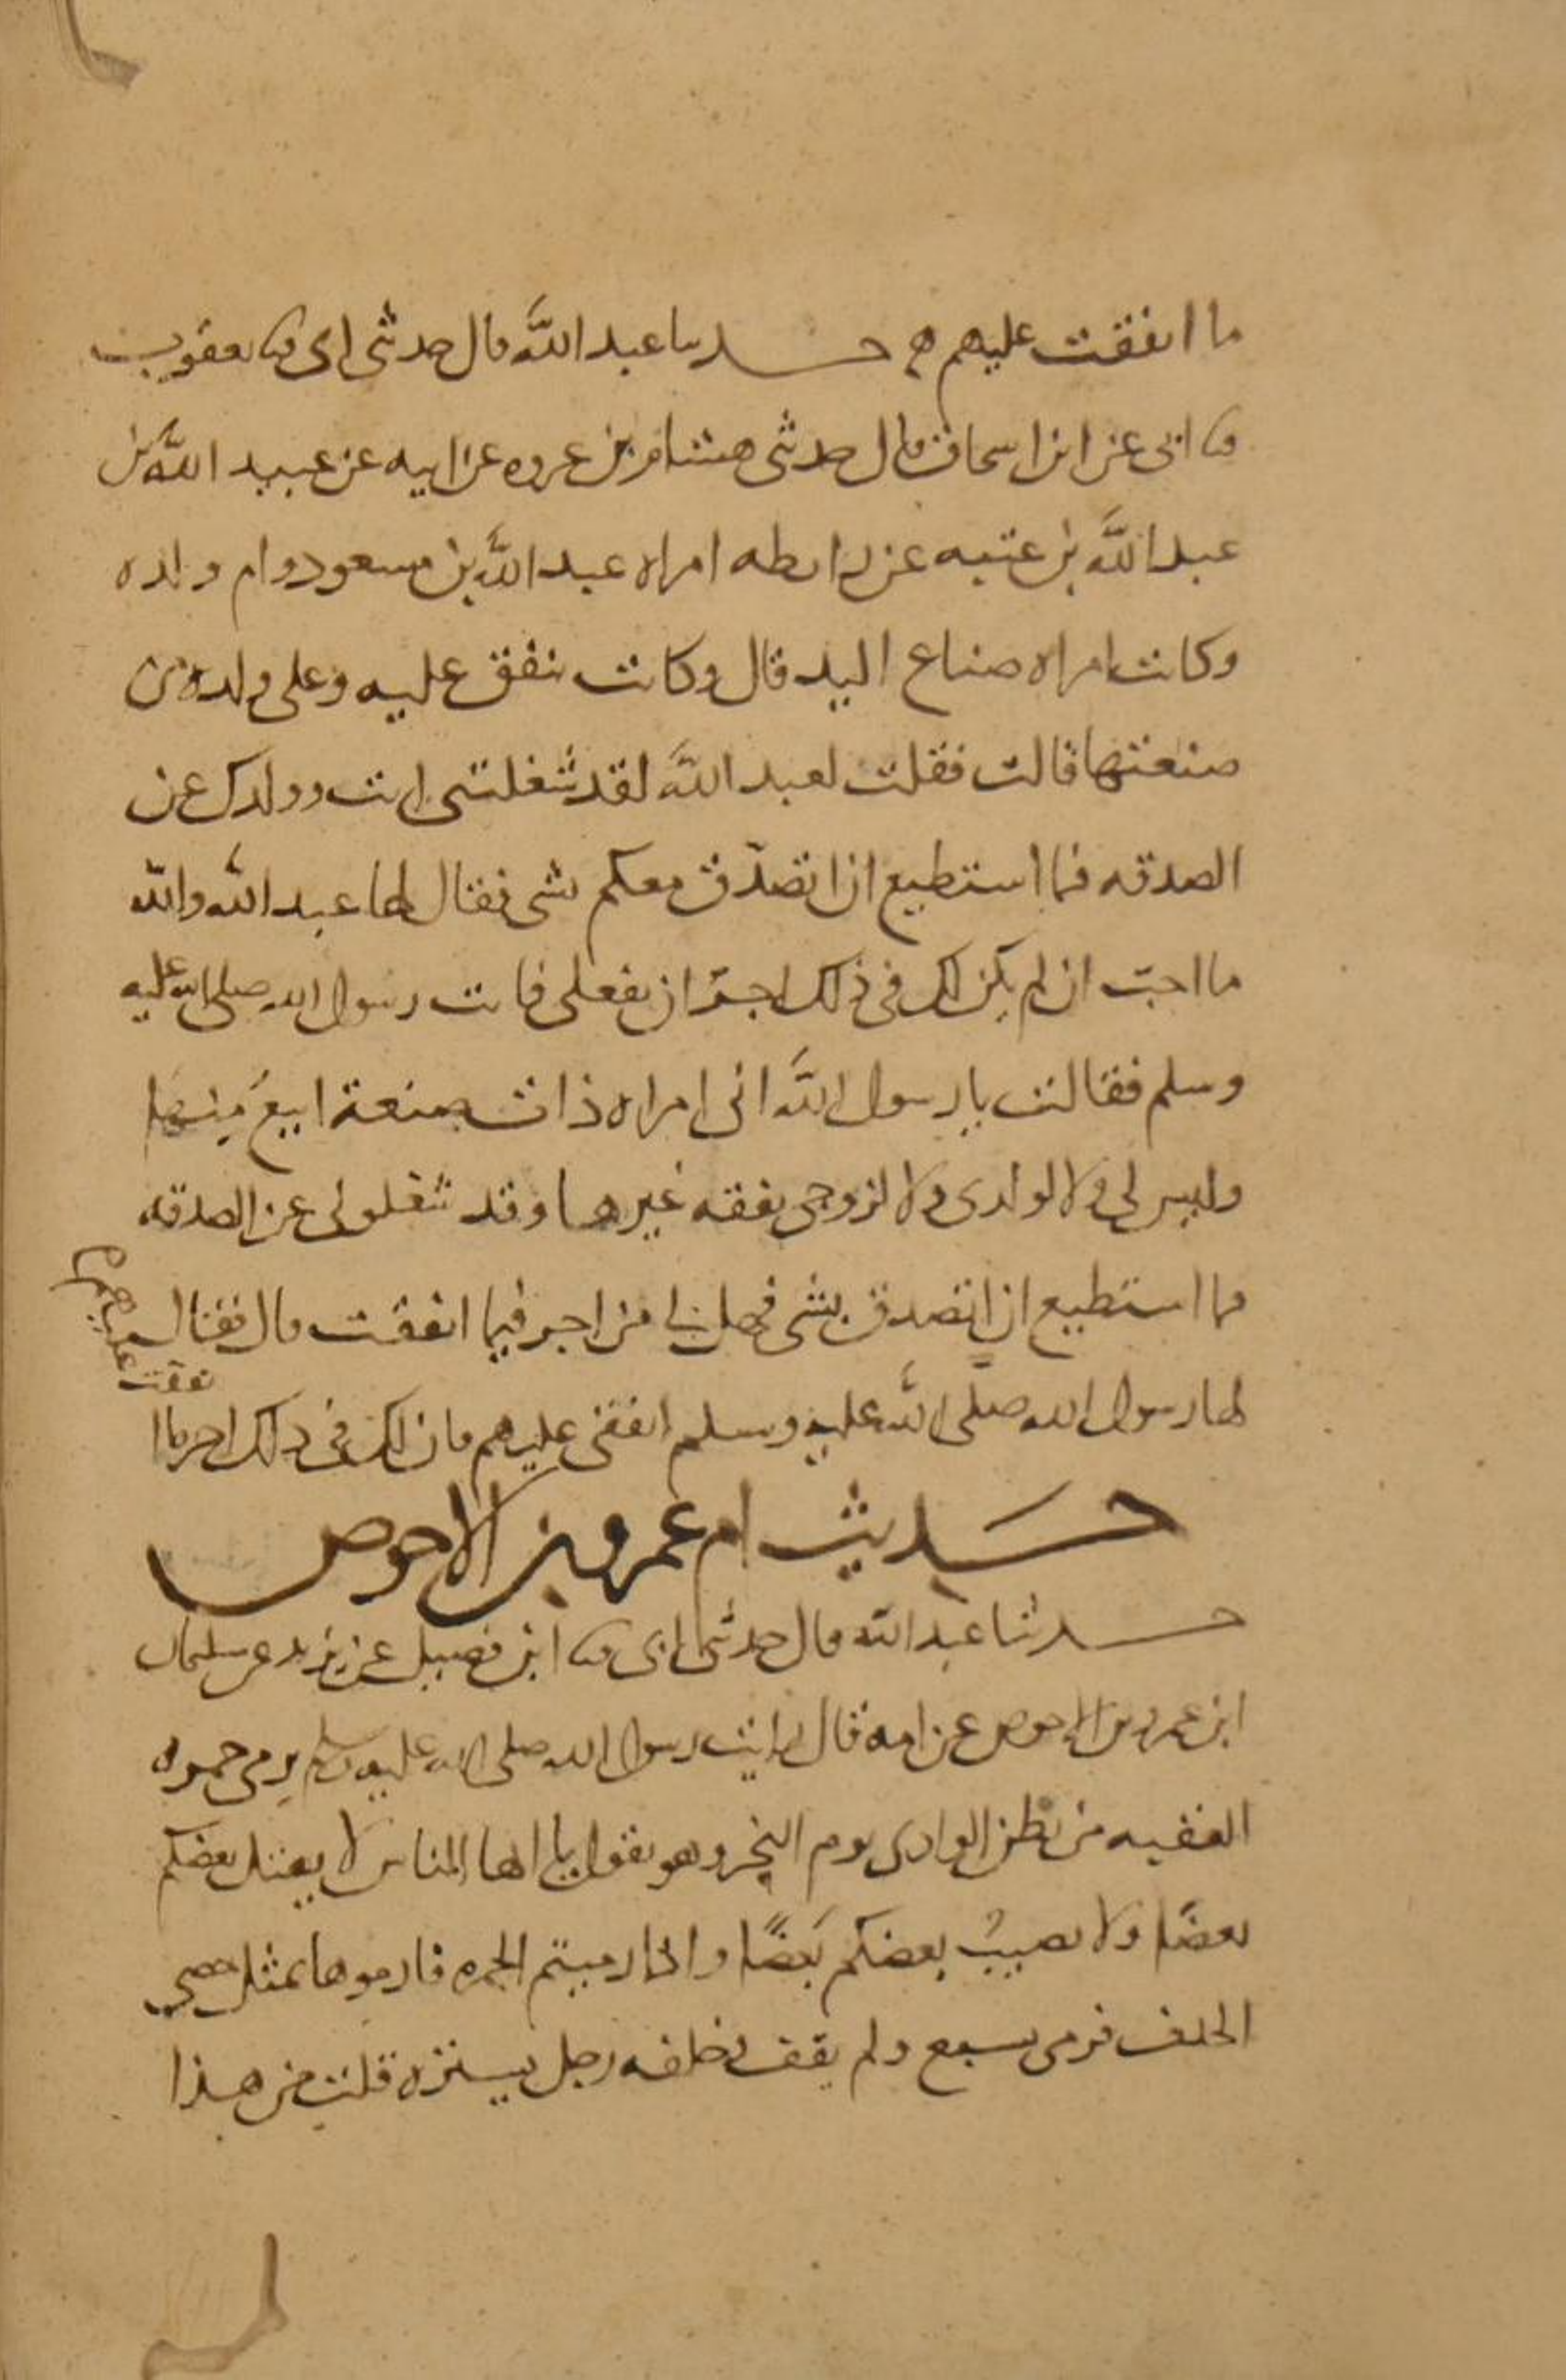 ما انفقت عليهم ه حدثنا عبد الله قال حدثني ابي ثنا يعقوب
ثنا ابي عن ابن اسحاق قال حدثني هشام بن عروه عن ابيه عن عبيد الله بن
عبد الله بن عتبه عن رابطه امراه عبد الله بن مسعود وام ولده
وكانت امراه صناع اليد قال وكانت تنفق عليه وعلى ولده من
صنعتها قالت فقلت لعبد الله لقد شغلتني انت وولدك عن
الصدقه فما استطيع ان اتصدق معكم بشى فقال لها عبد الله والله
ما احب ان لم يكن لك في ذلك اجر ان تفعلى فاتت رسول الله صلى الله عليه
وسلم فقالت يا رسول الله انى امراه ذات صنعة ابيع منها
وليس لى ولا لولدى ولا لزوجى نفقه غيرها وقد شغلونى عن الصدقه
فما استطيع ان اتصدق بشى فهل لى من اجر فيما انفقت قال فقال
لها رسول الله صلى الله عليه وسلم انفقى عليهم فان لك في ذلك اجر ما ا
نفقت عليهم
حديث ام عمرو بن الاحوص
حدثنا عبد الله قال حدثنى ابى ثنا ابن فضيل عن يزيد عن سليمان
ابن عمرو بن الاحوص عن امه قال رايت رسول الله صلى الله عليه وسلم يرمى جمره
العقبه من بطن الوادى يوم النحر وهو يقول يا ايها الناس لا يقتل بعضكم
بعضا ولا يصيب بعضكم بعضا واذا رميتم الجمره فارموها بمثل حصى
الخذف فرمى بسبع ولم يقف وخلفه رجل يستره قلت من هذا